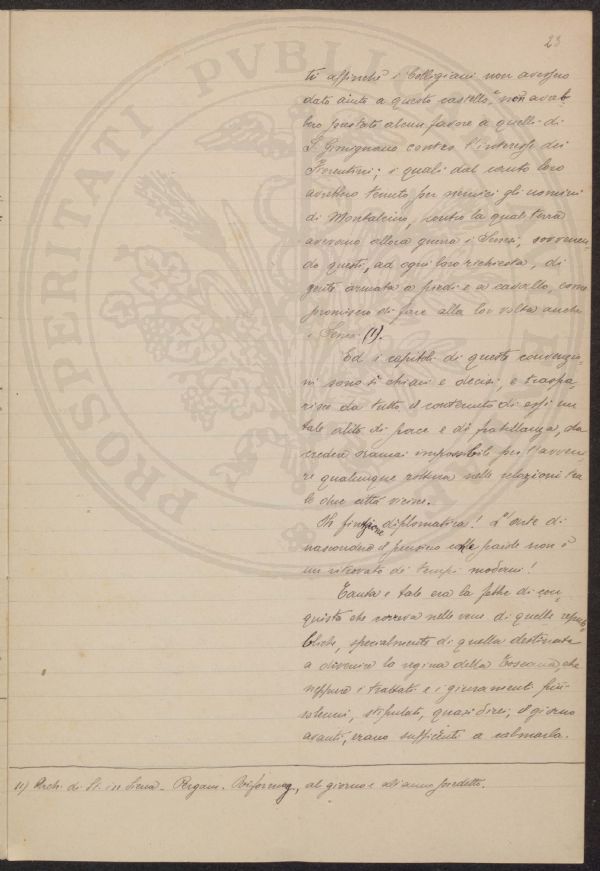 23
ti affinchè i Colligiani non avessero
dato aiuto a questo castello, non avreb
bero prestato alcun favore a quelli di
S. Gimignano contro l'interesse dei
Fiorentini; i quali dal canto loro
avrebbero tenuto per nemici gli uomini
di Montalcino, contro la qual terra
avevano allora guerra i Senesi, sovvenen
do questi, ad ogni loro richiesta, di
gente armata a piedi e a cavallo, come
promisero di fare alla lor volta anche
i Senesi (1).
Ed i capitoli di queste convenzio
ni sono sì chiari e decisi, e traspa
risce da tutto il contenuto di essi un
tale alito di pace e di fratellanza, da
credere oramai impossibili per l'avveni
re qualunque rottura nelle relazioni tra
le due città vicine.
Oh finzione diplomatica! L'arte di
nascondere il pensiero colle parole non è
un ritrovato di tempi moderni!
Tanta e tale era la febbre di con
quista che correva nelle vene di quelle repub
bliche, specialmente di quella destinata
a divenire la regina della Toscana, che
neppure i trattati e i giuramenti più
solenni, stipulati, quasi direi, il giorno
avanti, erano sufficienti a calmarla.
(1) Arch. di St. in Siena - Pergam. Riformag., al giorno e all'anno predetti.
PROSPERITATI PVBLI